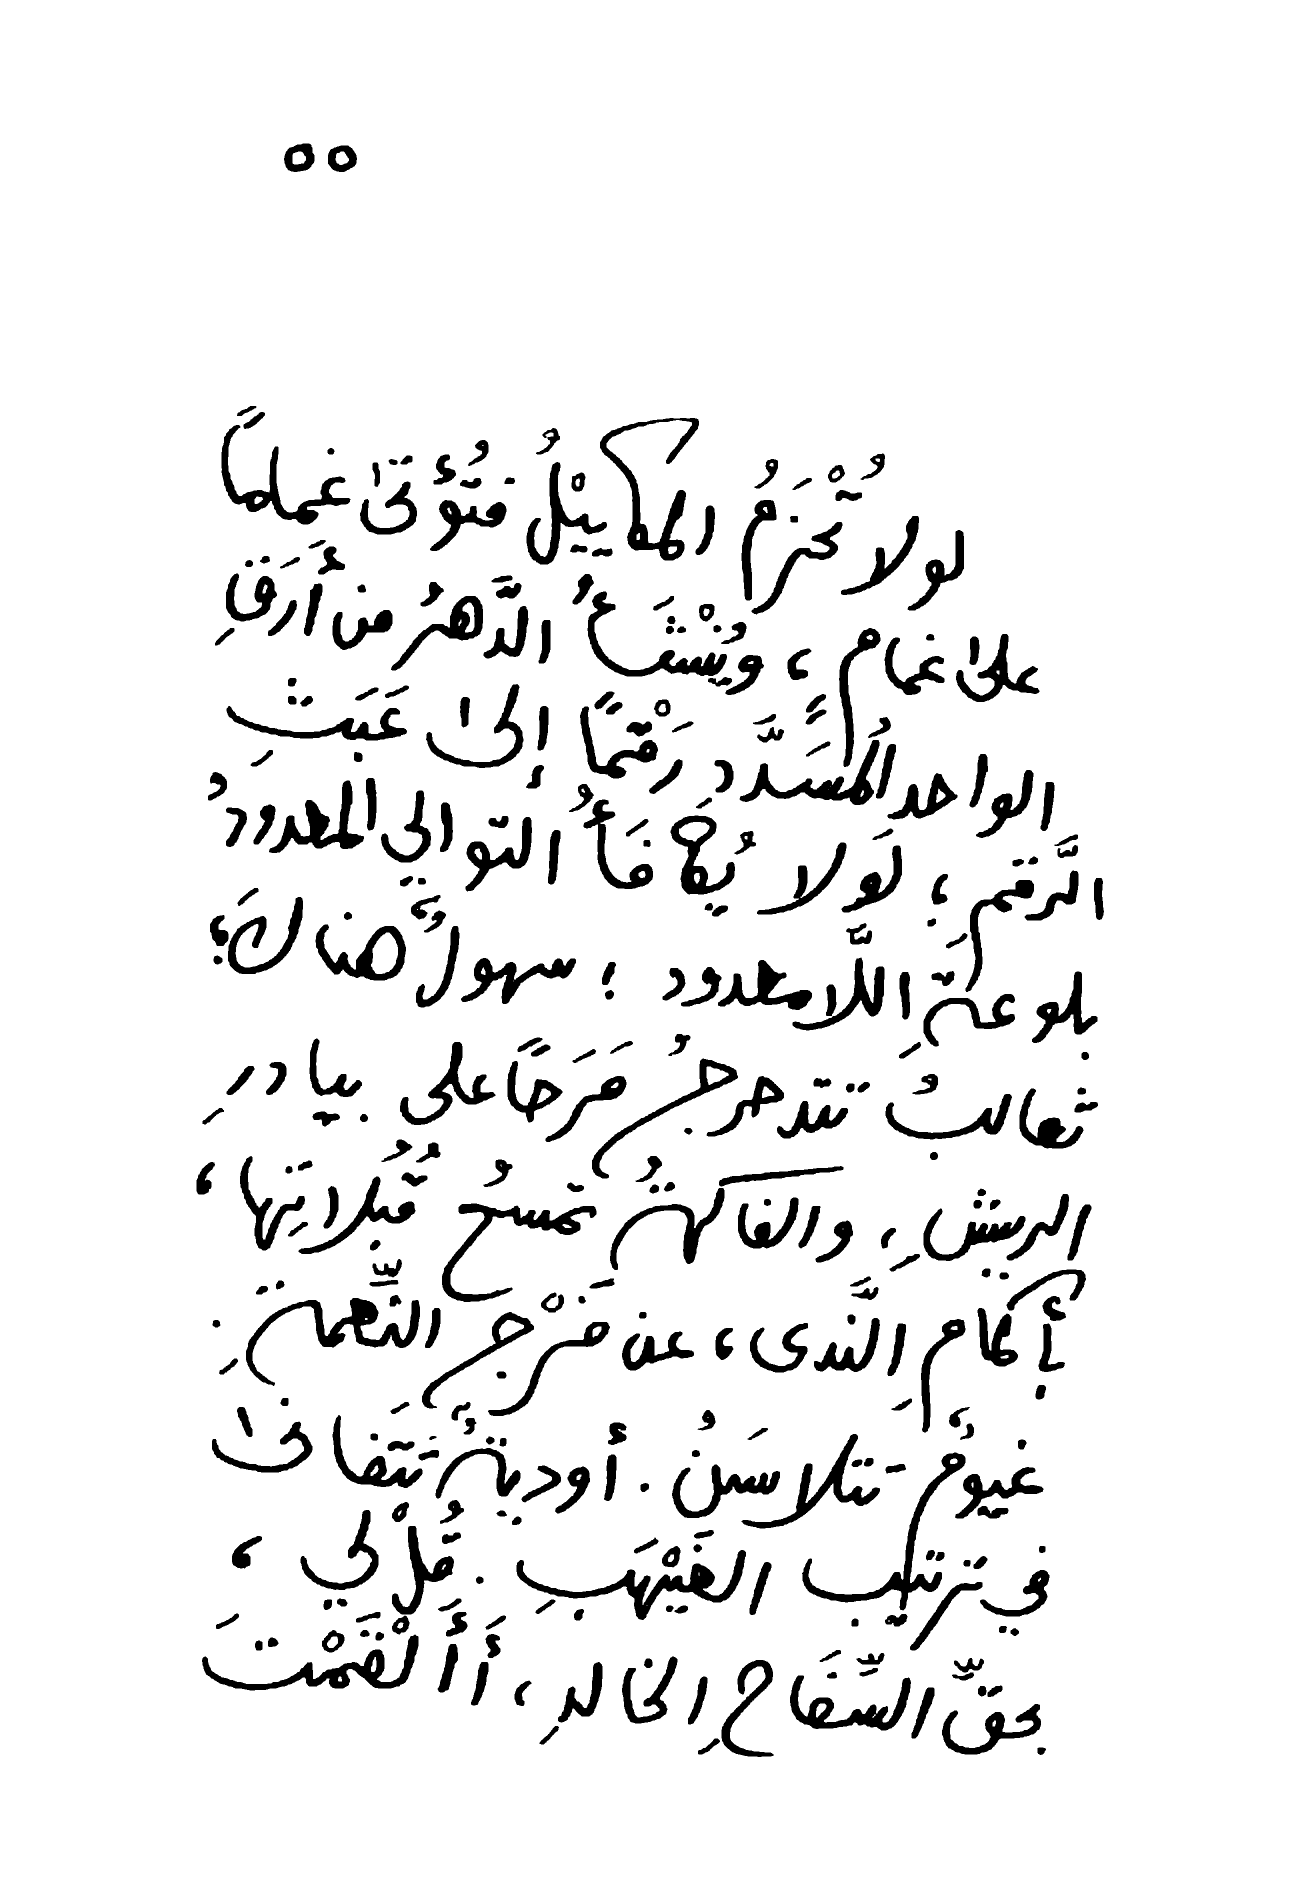 ٥٥
لولا تُحْزَمُ المكاييْلُ فتُؤتىٰ غماماً
علىٰ غمامٍ، ويُنْتَشَأُ الدَّهرُ من أَرَقِ
الواحد المُسَدَّد رَقْماً إلىٰ عَبَثِ
الرَّقمِ؛ لَولا يُكافَأُ التوالي المعدودُ
بلوعةِ اللَّامعدود؛ سهولٌ هناكَ؛
ثعالبُ تتدحرجُ مَرَحاً على بيادرِ
الريشِ، والفاكهةُ تمسحُ قُبُلاتِها،
بأكمامِ النَّدى، عن فَرْجِ النِّعمةِ.
غيومٌ تتلاسَنُ. أوديةٌ تَتَفانىٰ
في ترتيب الغَيْهَبِ. قُلْ لي،
بحقِّ السِّفَاحِ الخالدِ، أَأَلْقَمْتَ